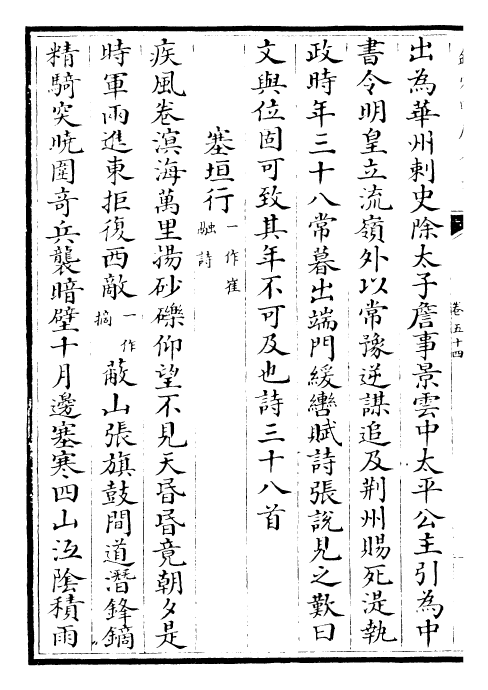 卷五十四
出為華州刺史除太子詹事景雲中太平公主引為中
書令明皇立流嶺外以常豫逆謀追及荆州賜死湜執
政時年三十八常暮出端門緩轡賦詩張說見之歎曰
文與位固可致其年不可及也詩三十八首
塞垣行一作崔融詩
疾風卷溟海萬里揚砂礫仰望不見天昏昏竟朝夕是
時軍兩進東拒復西敵一作摘蔽山張旗鼓間道潛鋒鏑
精騎突曉圍奇兵襲暗壁十月邊塞寒四山沍陰積雨